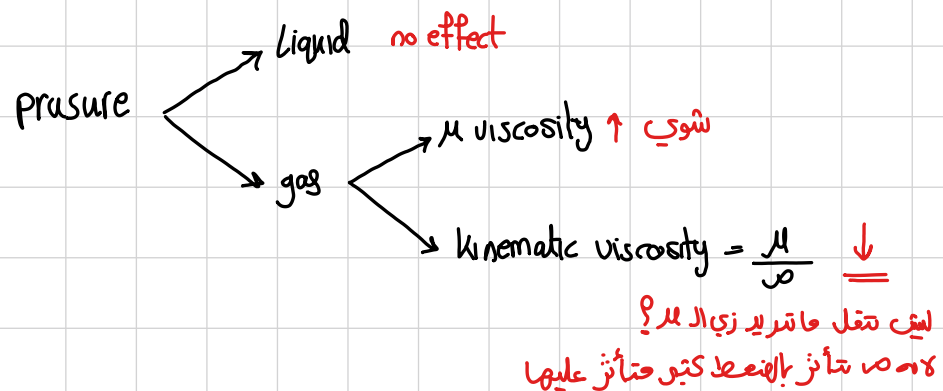 Liquid no effect
prusure
μ viscosity ↑ شوي
gas
kinematic viscosity = μ/ρ ↓
ليش تتقل ماتزيد زي ال μ؟
لانه ρ تتأثر بالضغط كثير فتأثر عليها